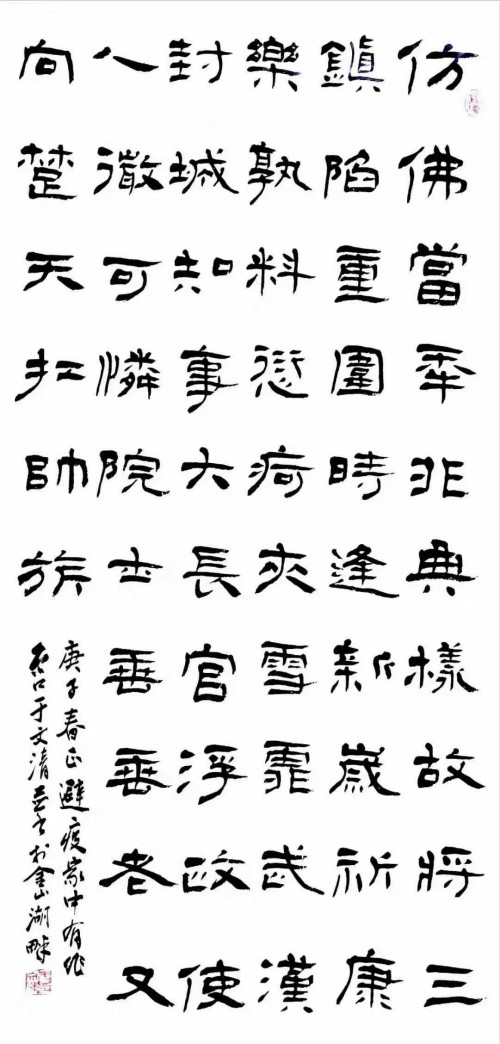 仿佛當年非典樣故將三
鎮陷重圍時逢新歲祈康
樂孰料愆疴夾雪霏武漢
封城知事大長官浮政使
人微可憐院士垂垂老又
向楚天扛帥旂
庚子春正避疫家中有作
京口于文清並書於金山湖畔